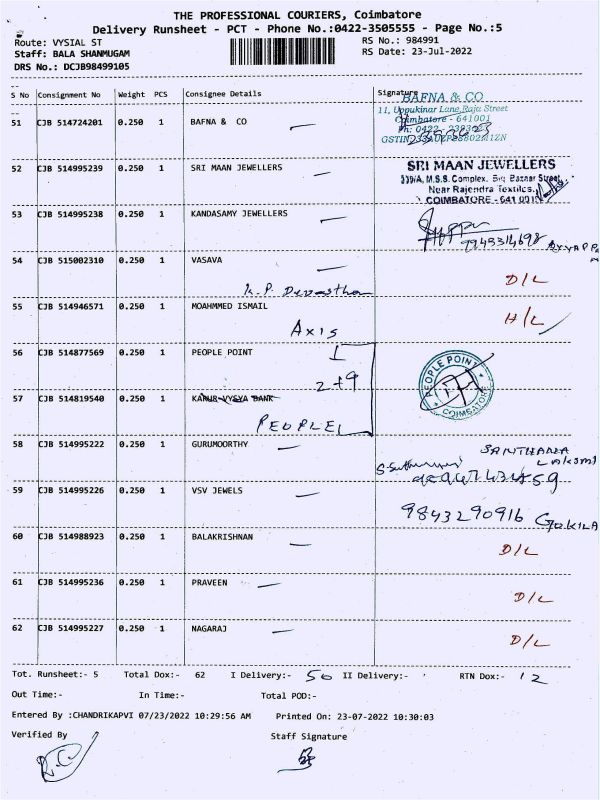 THE PROFESSIONAL COURIERS, Coimbatore
Delivery Runsheet - PCT - Phone No.:0422-3505555 - Page No.:5
Route: VYSIAL ST RS No.: 984991
Staff: BALA SHANMUGAM RS Date: 23-Jul-2022
DRS No.: DCJB98499105
S No Consignment No Weight PCS Consignee Details Signature
BAFNA & CO
11, Uppukinar Lane, Raja Street
Coimbatore - 641001
51 CJB 514724201 0.250 1 BAFNA & CO
52 CJB 514995239 0.250 1 SRI MAAN JEWELLERS
SRI MAAN JEWELLERS
339/A, M.S.S. Complex, Big Bazaar Street,
Near Rajendra Textiles,
COIMBATORE - 641 001
53 CJB 514995238 0.250 1 KANDASAMY JEWELLERS
54 CJB 515002310 0.250 1 VASAVA
D/L
55 CJB 514946571 0.250 1 MOAHMMED ISMAIL H/L
Axis
56 CJB 514877569 0.250 1 PEOPLE POINT
PEOPLE POINT
COIMBATORE
2+9
57 CJB 514819540 0.250 1 KARUR VYSYA BANK
PEOPLE
58 CJB 514995222 0.250 1 GURUMOORTHY
SANTHANA
LAKSMI
59 CJB 514995226 0.250 1 VSV JEWELS
9843290916 GOKILA
60 CJB 514988923 0.250 1 BALAKRISHNAN
D/L
61 CJB 514995236 0.250 1 PRAVEEN
D/L
62 CJB 514995227 0.250 1 NAGARAJ
D/L
Tot. Runsheet:- 5 Total Dox:- 62 I Delivery:- 50 II Delivery:- RTN Dox:- 12
Out Time:- In Time:- Total POD:-
Entered By :CHANDRIKAPVI 07/23/2022 10:29:56 AM Printed On: 23-07-2022 10:30:03
Verified By Staff Signature